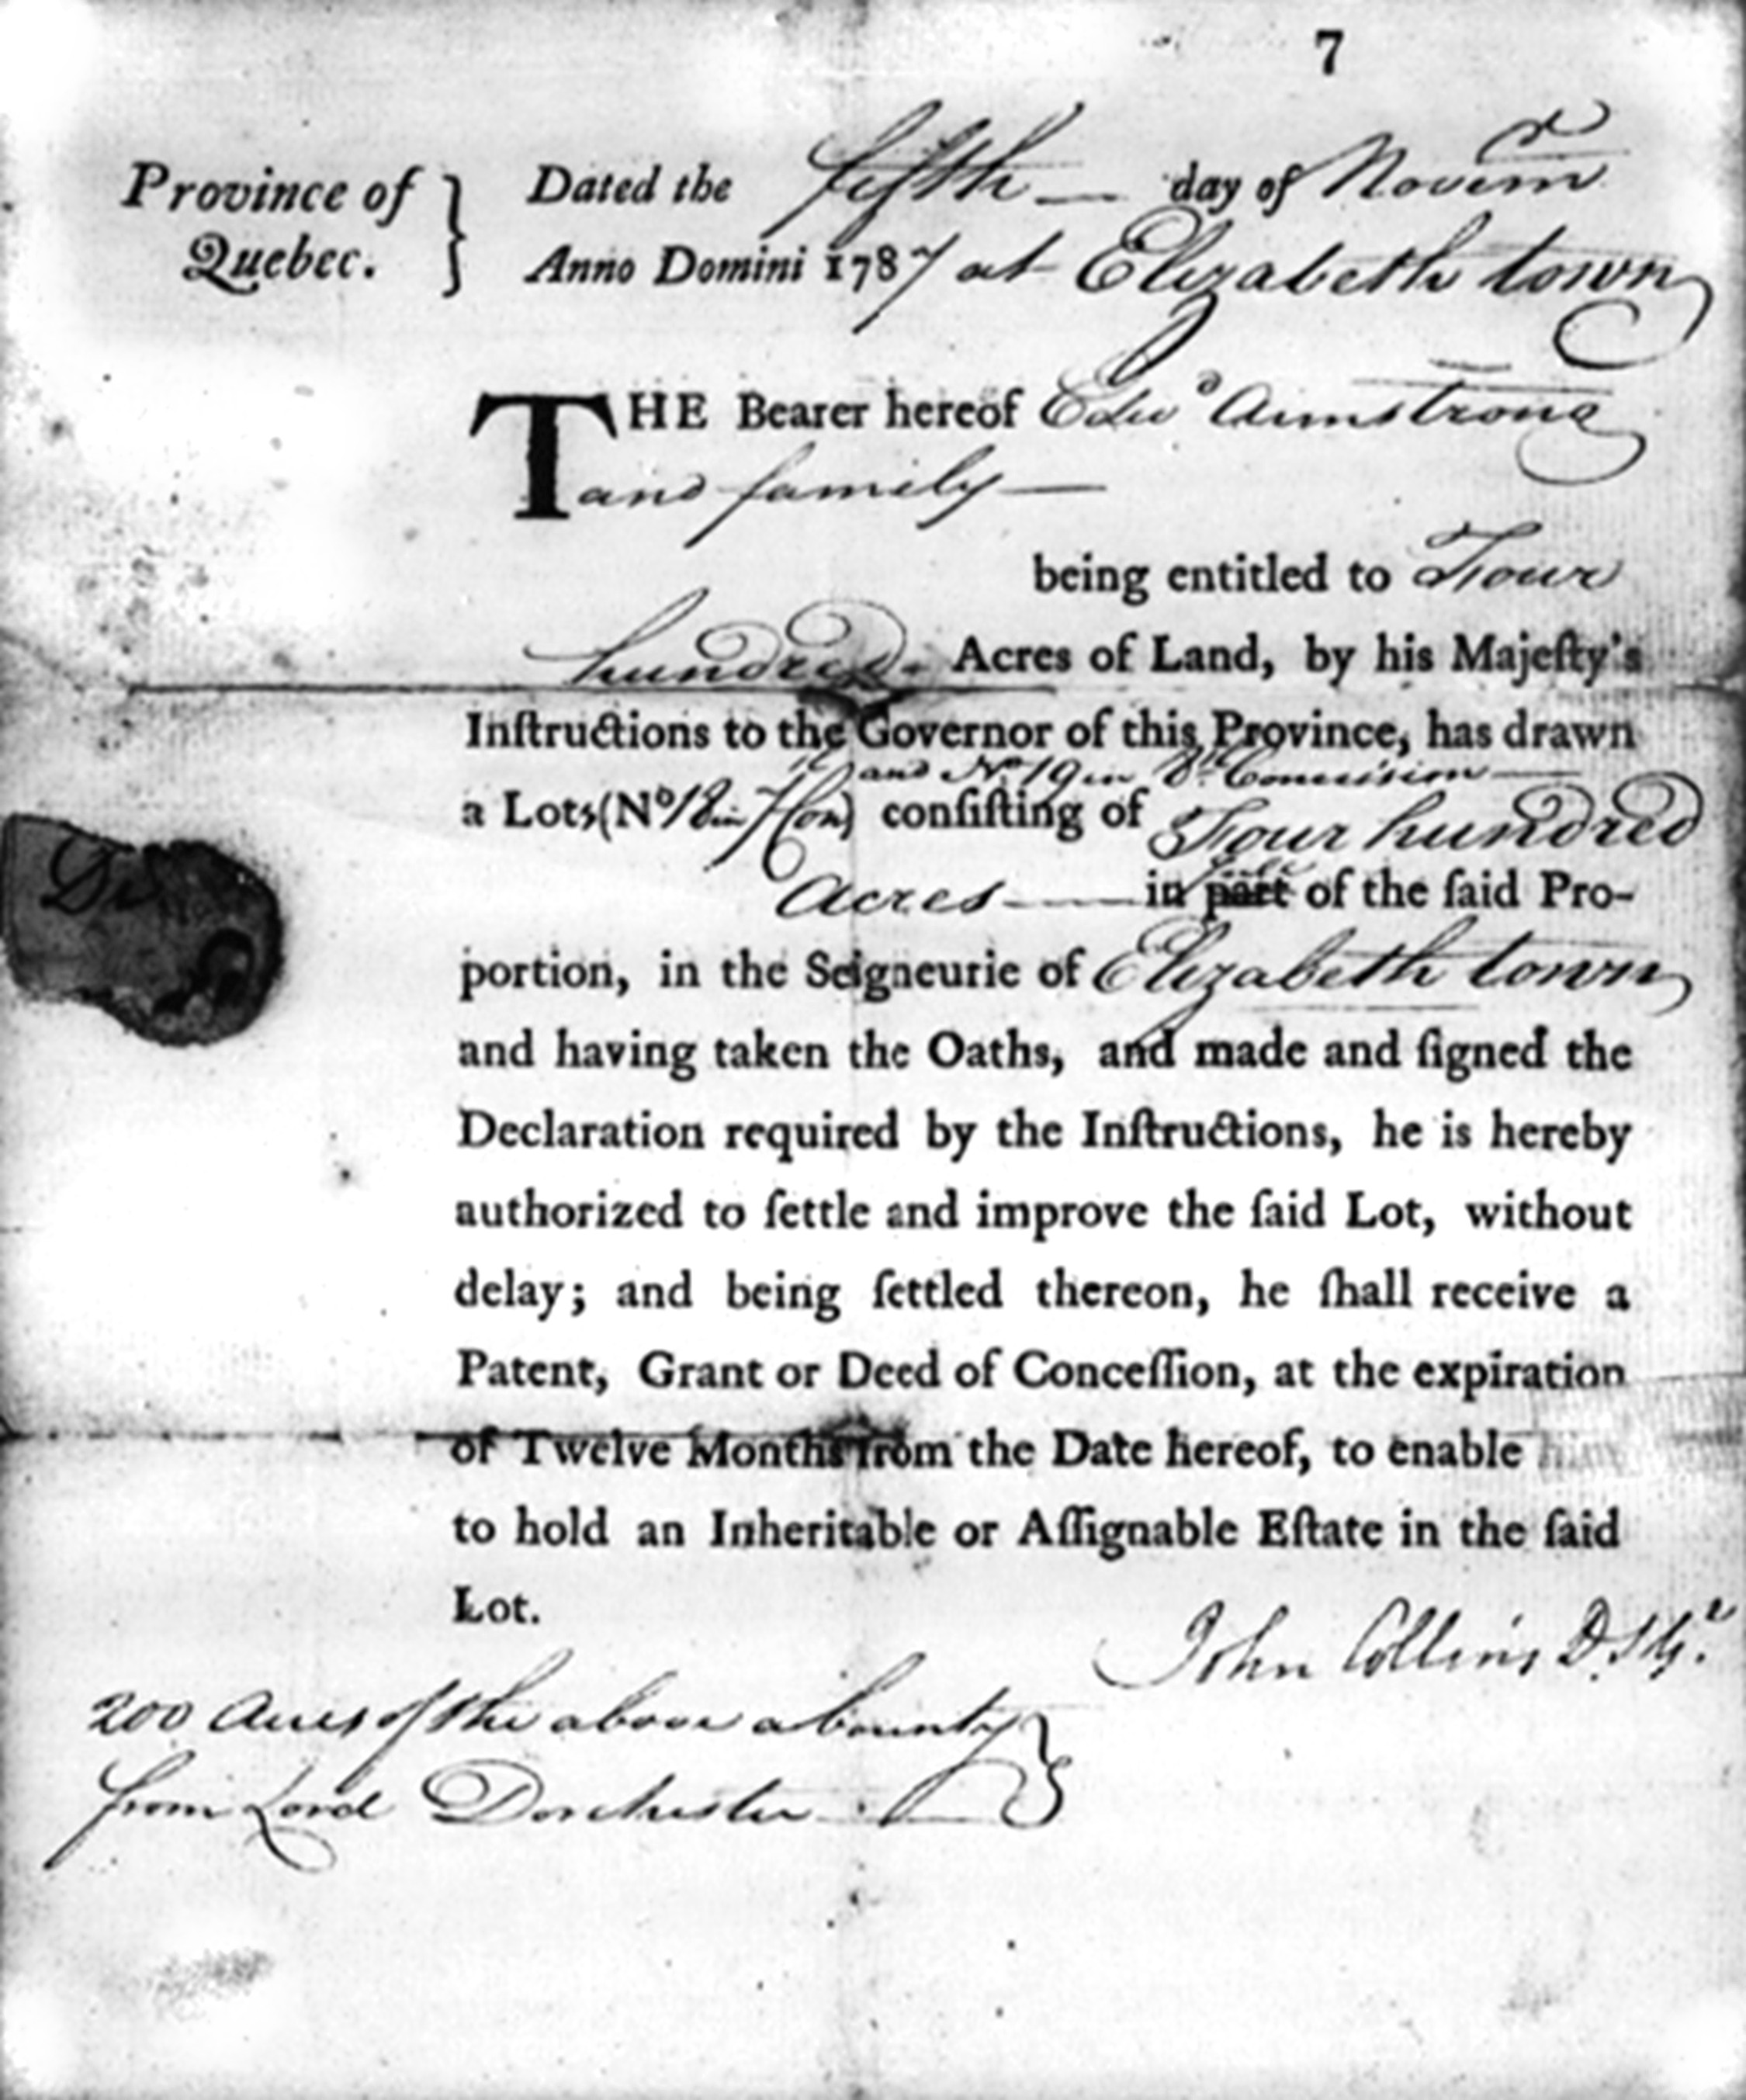 7
Province of Quebec. } Dated the fifth — day of Novemr
Anno Domini 1787 at Elizabeth town
THE Bearer hereof Edwd Armstrong
and family —
being entitled to Four
hundred Acres of Land, by his Majeſty's
Inſtructions to the Governor of this Province, has drawn
and No 19 in 8th Concission —
a Lots (No 18 in 7 Con) conſiſting of Four hundred
Acres — in part of the ſaid Pro-
portion, in the Seigneurie of Elizabeth town
and having taken the Oaths, and made and ſigned the
Declaration required by the Inſtructions, he is hereby
authorized to ſettle and improve the ſaid Lot, without
delay; and being ſettled thereon, he ſhall receive a
Patent, Grant or Deed of Conceſſion, at the expiration
of Twelve Months from the Date hereof, to enable him
to hold an Inheritable or Aſſignable Eſtate in the ſaid
Lot.
John Collins D.S.G.r
200 Acres of the above a bounty
from Lord Dorchester